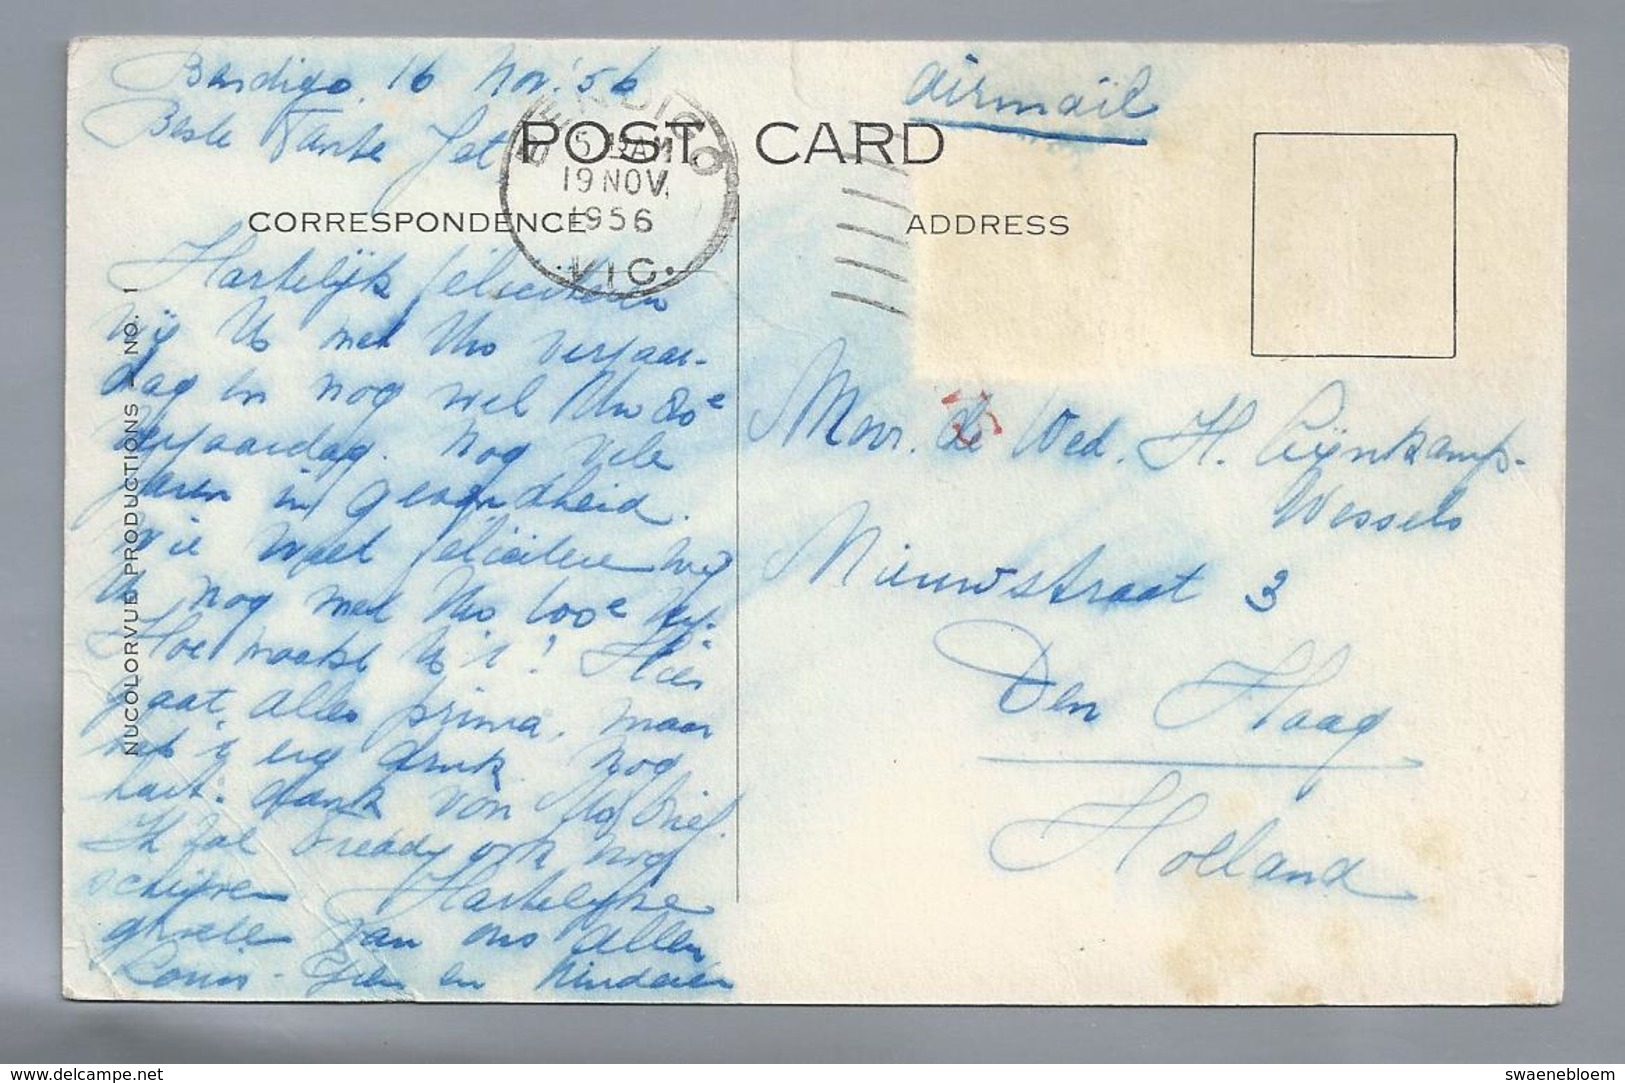 Bendigo 16 Nov. '56
Beste Tante Jet
airmail
POST CARD
BENDIGO
5 AM
19 NOV.
1956
·VIC·
CORRESPONDENCE
ADDRESS
NUCOLORVUE PRODUCTIONS — NO. 1
Hartelijk feliciteren
wij U met Uw verjaar-
dag en nog wel Uw 80e
verjaardag. Nog vele
jaren in gezondheid.
Wie weet feliciteren wij
U nog met Uw 100e
Hoe maakt U 't? Hier
gaat alles prima, maar
heb 't erg druk. Nog
hart. dank voor Uw brief.
Ik zal ook nog
schijven Hartelijke
groeten van ons allen
Louis - en kinderen
Mevr. de Wed. H. Cijnkamp-
Wessels
Nieuwstraat 3
Den Haag
Holland
www.delcampe.net
swaenebloem